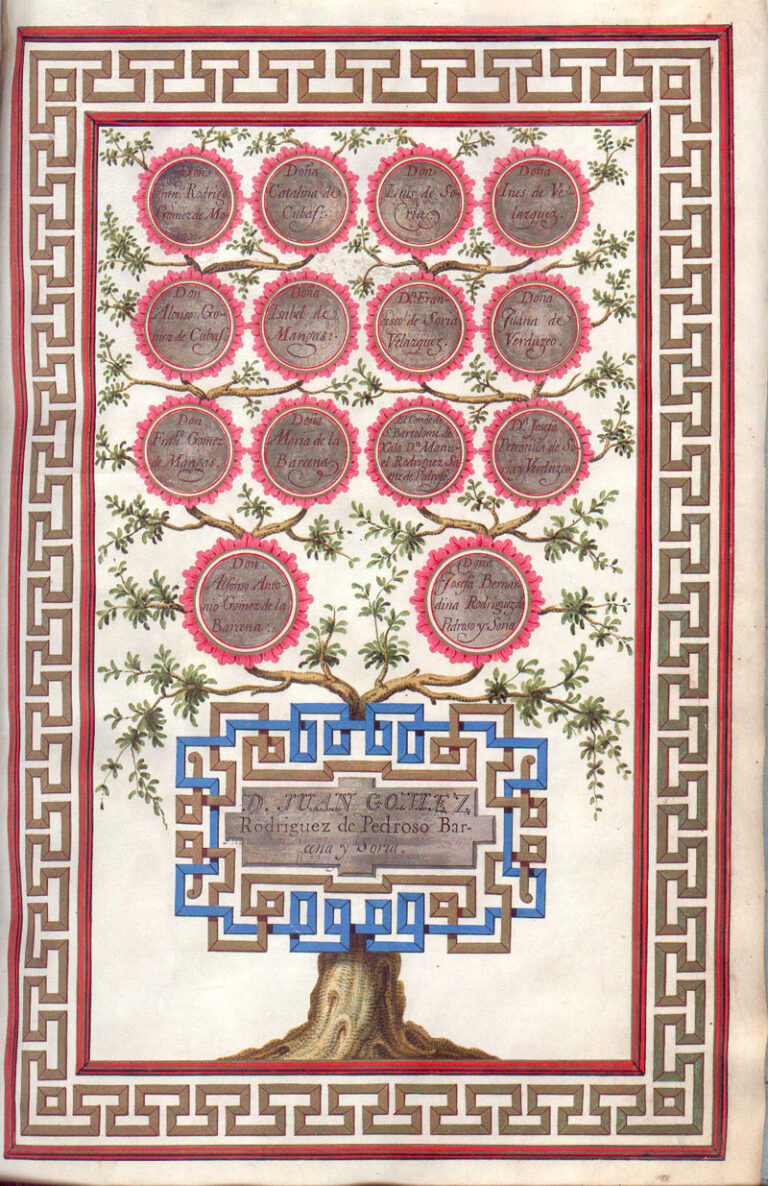 Don
Fran. Rodrigo
Gomez de Mo-
Doña
Catalina de
Cubas:
Don
Luis de So-
ria.
Doña
Ines de Ve-
lazquez.
Don
Alonso Go-
mez de Cubas.
Doña
Isabel de
Mangas:.
Dn. Fran-
cisco de Soria
Velazquez.
Doña
Juana de
Verduzco.
Don
Franco. Gomez
de Mangas.
Doña
Maria de la
Barcena.
El Conde de
S. Bartolome de
Xala Dn. Manu-
el Rodriguez Sa-
enz de Pedroso.
Da. Josefa
Petronila de So-
ria y Verduzco
Don
Alfonso Anto-
nio Gomez de la
Barcena:.
Doña
Josefa Bernar-
dina Rodriguez de
Pedroso y Soria
D. JUAN GOMEZ
Rodriguez de Pedroso Bar-
cena y Soria.